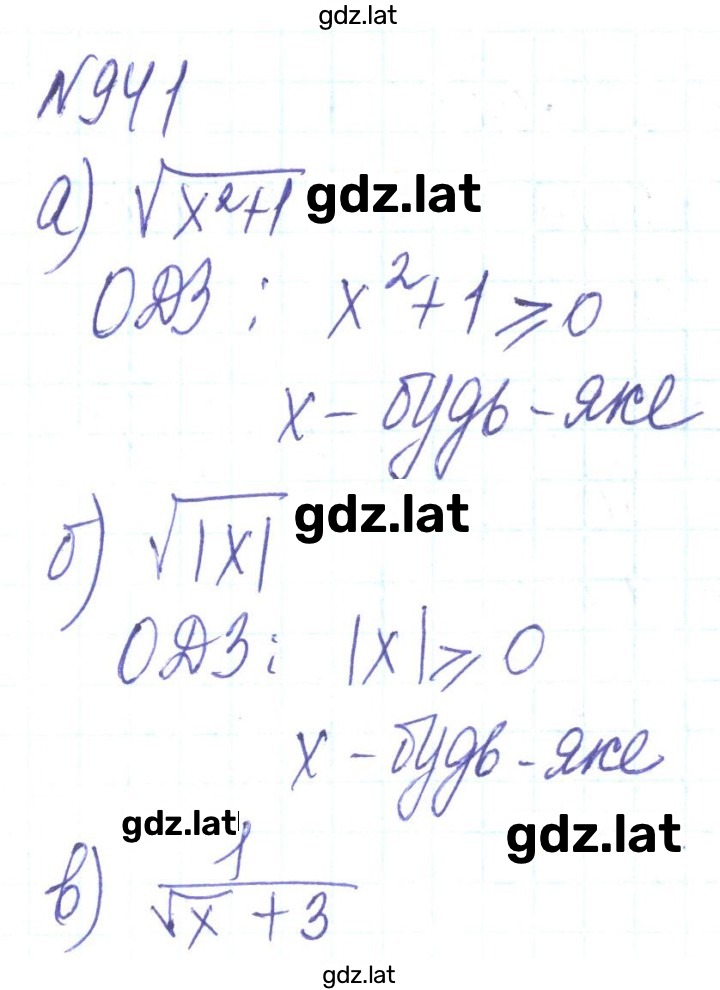 gdz.lat
№941
а) √(x²+1) gdz.lat
ОДЗ: x²+1 ⩾ 0
x - будь-яке
б) √|x| gdz.lat
ОДЗ: |x| ⩾ 0
x - будь-яке
gdz.lat gdz.lat
в) 1/(√x + 3)
gdz.lat